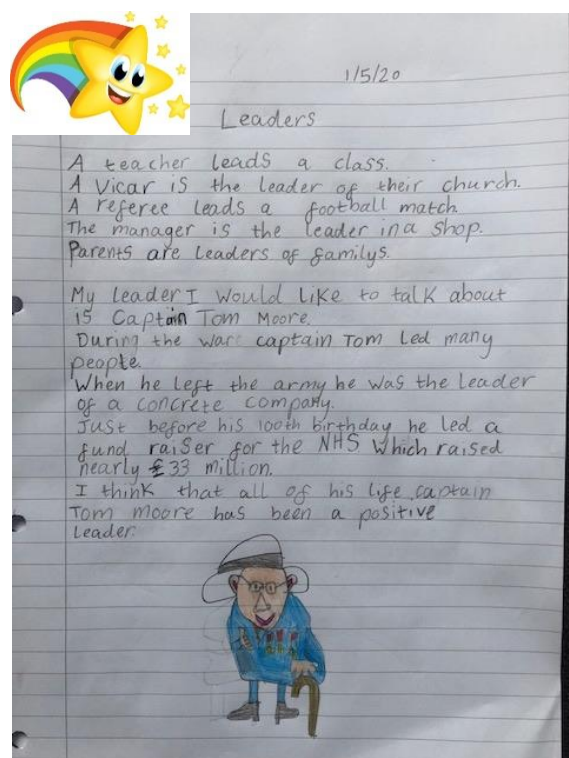 1/5/20
Leaders
A teacher leads a class.
A Vicar is the leader of their church.
A referee leads a football match.
The manager is the leader in a shop.
Parents are leaders of familys.
My leader I would like to talk about
is Captain Tom Moore.
During the war captain Tom Led many
people.
When he left the army he was the leader
of a concrete company.
Just before his 100th birthday he led a
fund raiser for the NHS Which raised
nearly £33 million.
I think that all of his life captain
Tom moore has been a positive
Leader.